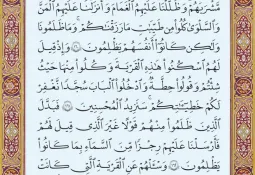 مَّشْرَبَهُمْ وَظَلَّلْنَا عَلَيْهِمُ الْغَمَامَ وَأَنزَلْنَا عَلَيْهِمُ الْمَنَّ
وَالسَّلْوَىٰ كُلُوا مِن طَيِّبَاتِ مَا رَزَقْنَاكُمْ وَمَا ظَلَمُونَا
وَلَٰكِن كَانُوا أَنفُسَهُمْ يَظْلِمُونَ ۝ وَإِذْ قِيلَ
لَهُمُ اسْكُنُوا هَٰذِهِ الْقَرْيَةَ وَكُلُوا مِنْهَا حَيْثُ
شِئْتُمْ وَقُولُوا حِطَّةٌ وَادْخُلُوا الْبَابَ سُجَّدًا نَّغْفِرْ
لَكُمْ خَطِيئَاتِكُمْ سَنَزِيدُ الْمُحْسِنِينَ ۝ فَبَدَّلَ
الَّذِينَ ظَلَمُوا مِنْهُمْ قَوْلًا غَيْرَ الَّذِي قِيلَ لَهُمْ
فَأَرْسَلْنَا عَلَيْهِمْ رِجْزًا مِّنَ السَّمَاءِ بِمَا كَانُوا
يَظْلِمُونَ ۝ وَسْئَلْهُمْ عَنِ الْقَرْيَةِ الَّتِي كَانَتْ